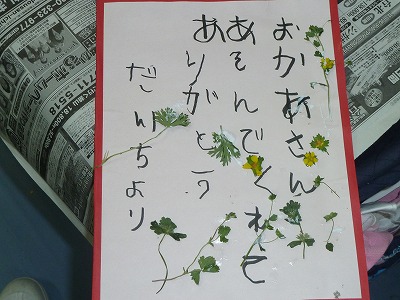 おかあさん
あそんでくれて
ありがとう
だいちより